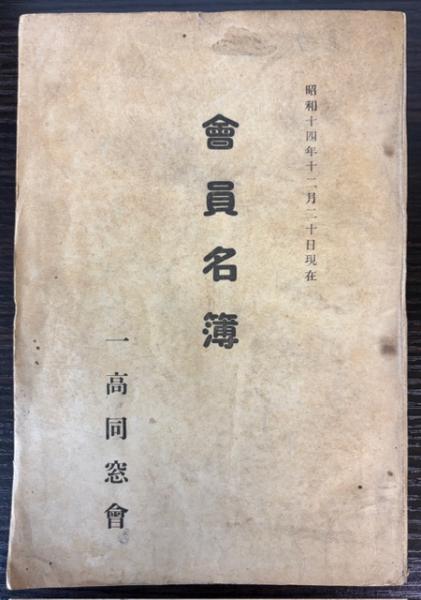 昭和十四年十二月二十日現在
會員名簿
一高同窓會